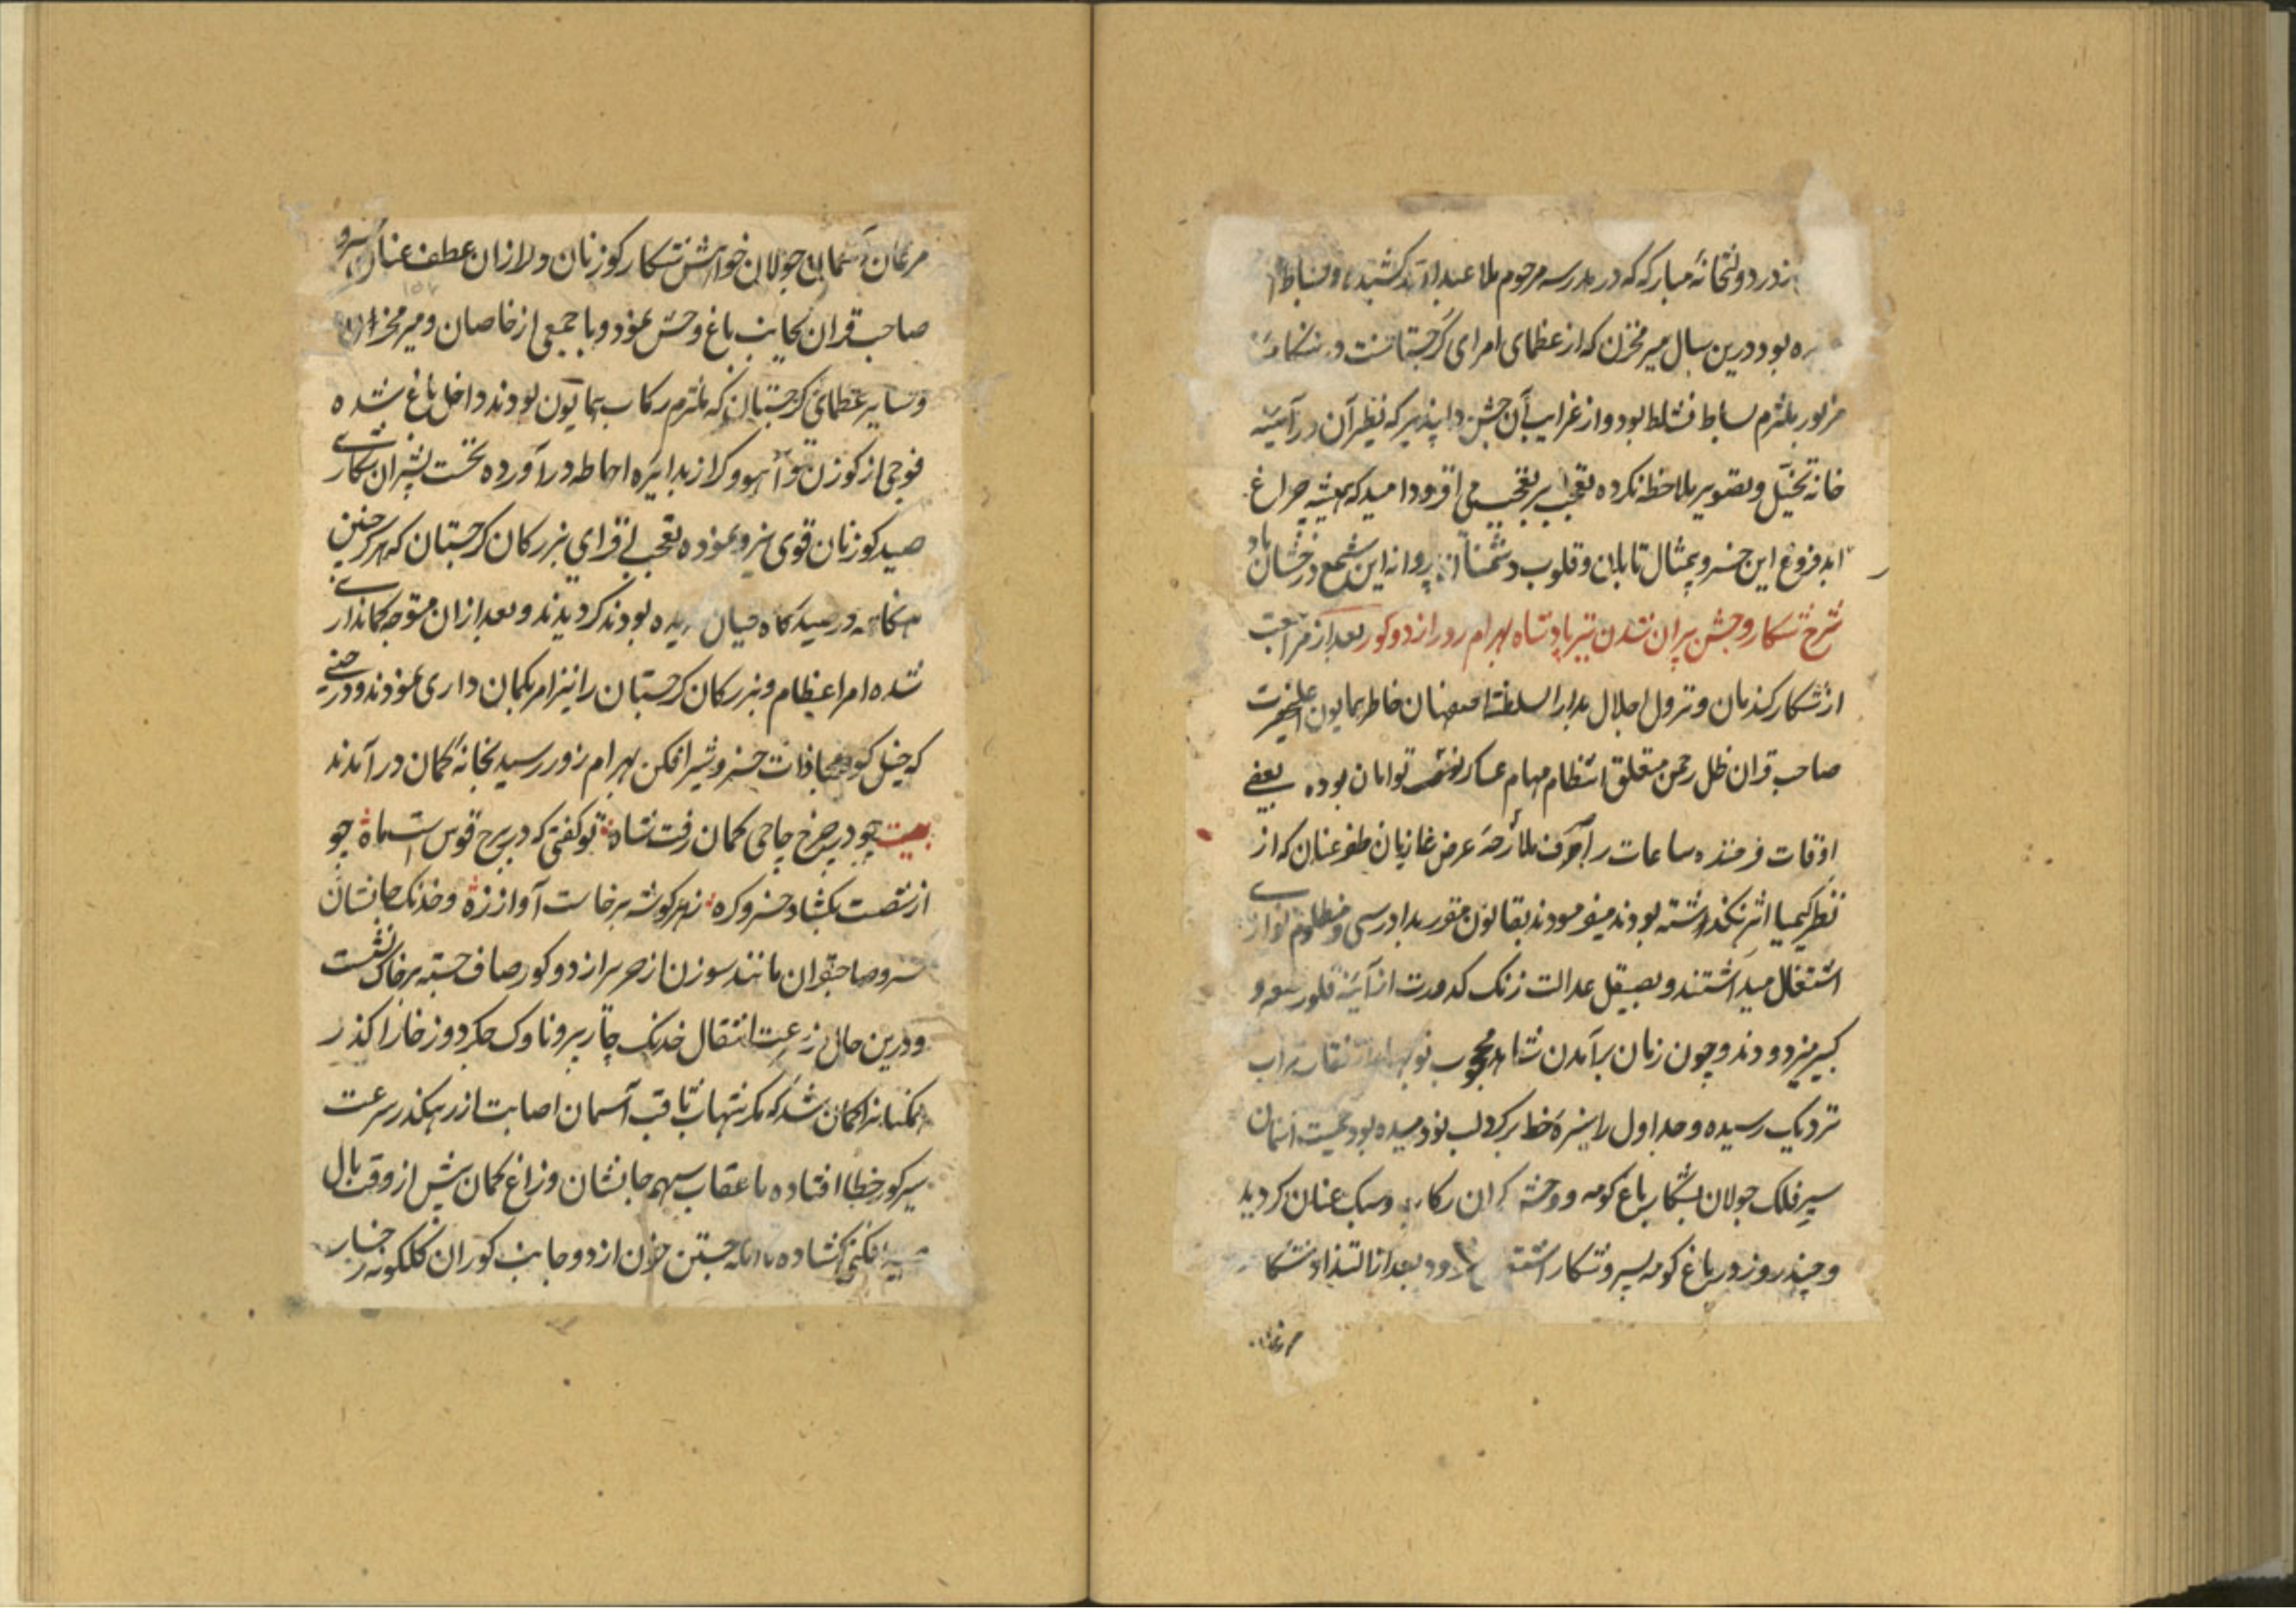 در دولتخانهٔ مبارکه که در مدرسه مرحوم ملا عبدالله کشیده و بساط
بود درین سال میر مخزن که از عظمای امرای گرجستانست
مزبور ملتزم بساط نشاط بود و از غرایب آن جشن دلپذیر که نظیر آن در آینه
خانه تخیل و تصویر ملاحظه نکرده تعجب بر تعجب می افزود امید که همیشه چراغ
ابد فروغ این خسرو بیمثال تابان و قلوب دشمنان پروانه این شمع درخشان باد
شرح شکار وحش پران شدن تیر پادشاه بهرام زور از دو کور بعد از مراجعت
از شکار کندمان و نزول اجلال بدار السلطنه اصفهان خاطر همایون اعلیحضرت
صاحب قران ظل رحمن متعلق انتظام مهام عساکر نصرت توامان بوده بعضی
اوقات فرخنده ساعات را صرف ملاحظه عرض غازیان ظفر عنان که از
نظر کیمیا اثر نگذشته بودند میفرمودند بقانون مقرر بدادرسی و مظلوم نوازی
اشتغال میداشتند و بصیقل عدالت زنک کدورت از آینه قلوب صغیر و
کبیر میزدودند و چون زمان برآمدن شاهد محبوب نوبهار از نقاب
نزدیک رسیده و جداول را سبزه خط بر گرد لب نو دمیده بود
سپر فلک جولان بشکار باغ کومه و وحش گران رکاب و سبک عنان کردید
و چند روز در باغ کومه بسیر و شکار بود بعد از التذاذ شکار
مرغان آسمان جولان خواهش شکار کوزنان و لازان عطف عنان خسرو
صاحب قران بجانب باغ وحش نمود و با جمعی از خاصان و میر مخزان
و سایر عظمای کرجستان که ملتزم رکاب همایون بودند داخل باغ شده
فوجی از کوزن و آهو و کراز بدایره احاطه درآورده نخست بشیران شکاری
صید کوزنان قوی نیرو نموده تعجب افزای بزرکان کرجستان که هرکز چنین
هنکامه در صیدکاه ندیده بودند کردیدند و بعد از ان متوجه کمانداری
شده امرا عظام و بزرکان کرجستان را نیز امر بکمان داری نمودند و در حینی
که خیل کور بمحاذات خسرو شیر افکن بهرام زور رسید بخانه کمان درآمدند
بیت چو در چرخ چاچی کمان رفت شاه تو کفتی که در برج قوس است ماه چو
از شصت بکشاد خسرو کره ز هر کوشه برخاست آواز زه و خدنک جانشان
خسرو صاحبقران مانند سوزن از حریر از دو کور صاف جسته بر خاک نشست
و درین حال ز سرعت انتقال خدنک چارپر و ناوک جکردوز خارا کذر
همکنانرا کمان شد که مکر شهاب ثاقب آسمان اصابت از رهکذر سرعت
سیر کور خطا افتاده یا عقاب سهم جانشان و زاغ کمان پیش از وقت بال
کشاده جستن خون از دو جانب کوران کلکونه رخسار